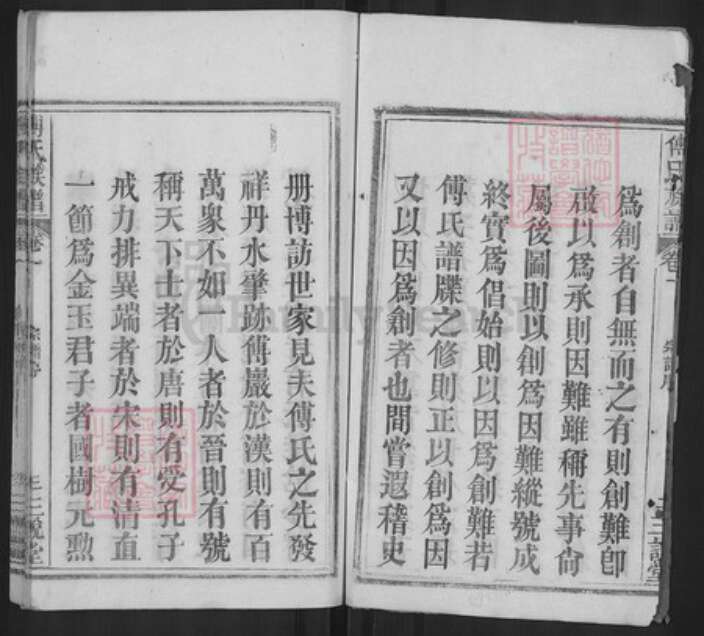 傅氏族譜 卷一
為創者自無而之有則創難卽
啟以為承則因難雖稱先事尙
屬後圖則以創為因難縱號成
終實為倡始則以因為創難若
傅氏譜牒之修則正以創為因
又以因為創者也間嘗遐稽史
冊博訪世家見夫傅氏之先發
祥丹水肇跡傅巖於漢則有百
萬衆不如一人者於晉則有號
稱天下士者於唐則有受孔子
戒力排異端者於宋則有淸直
一節為金玉君子者國樹元勳
氏族譜 卷一